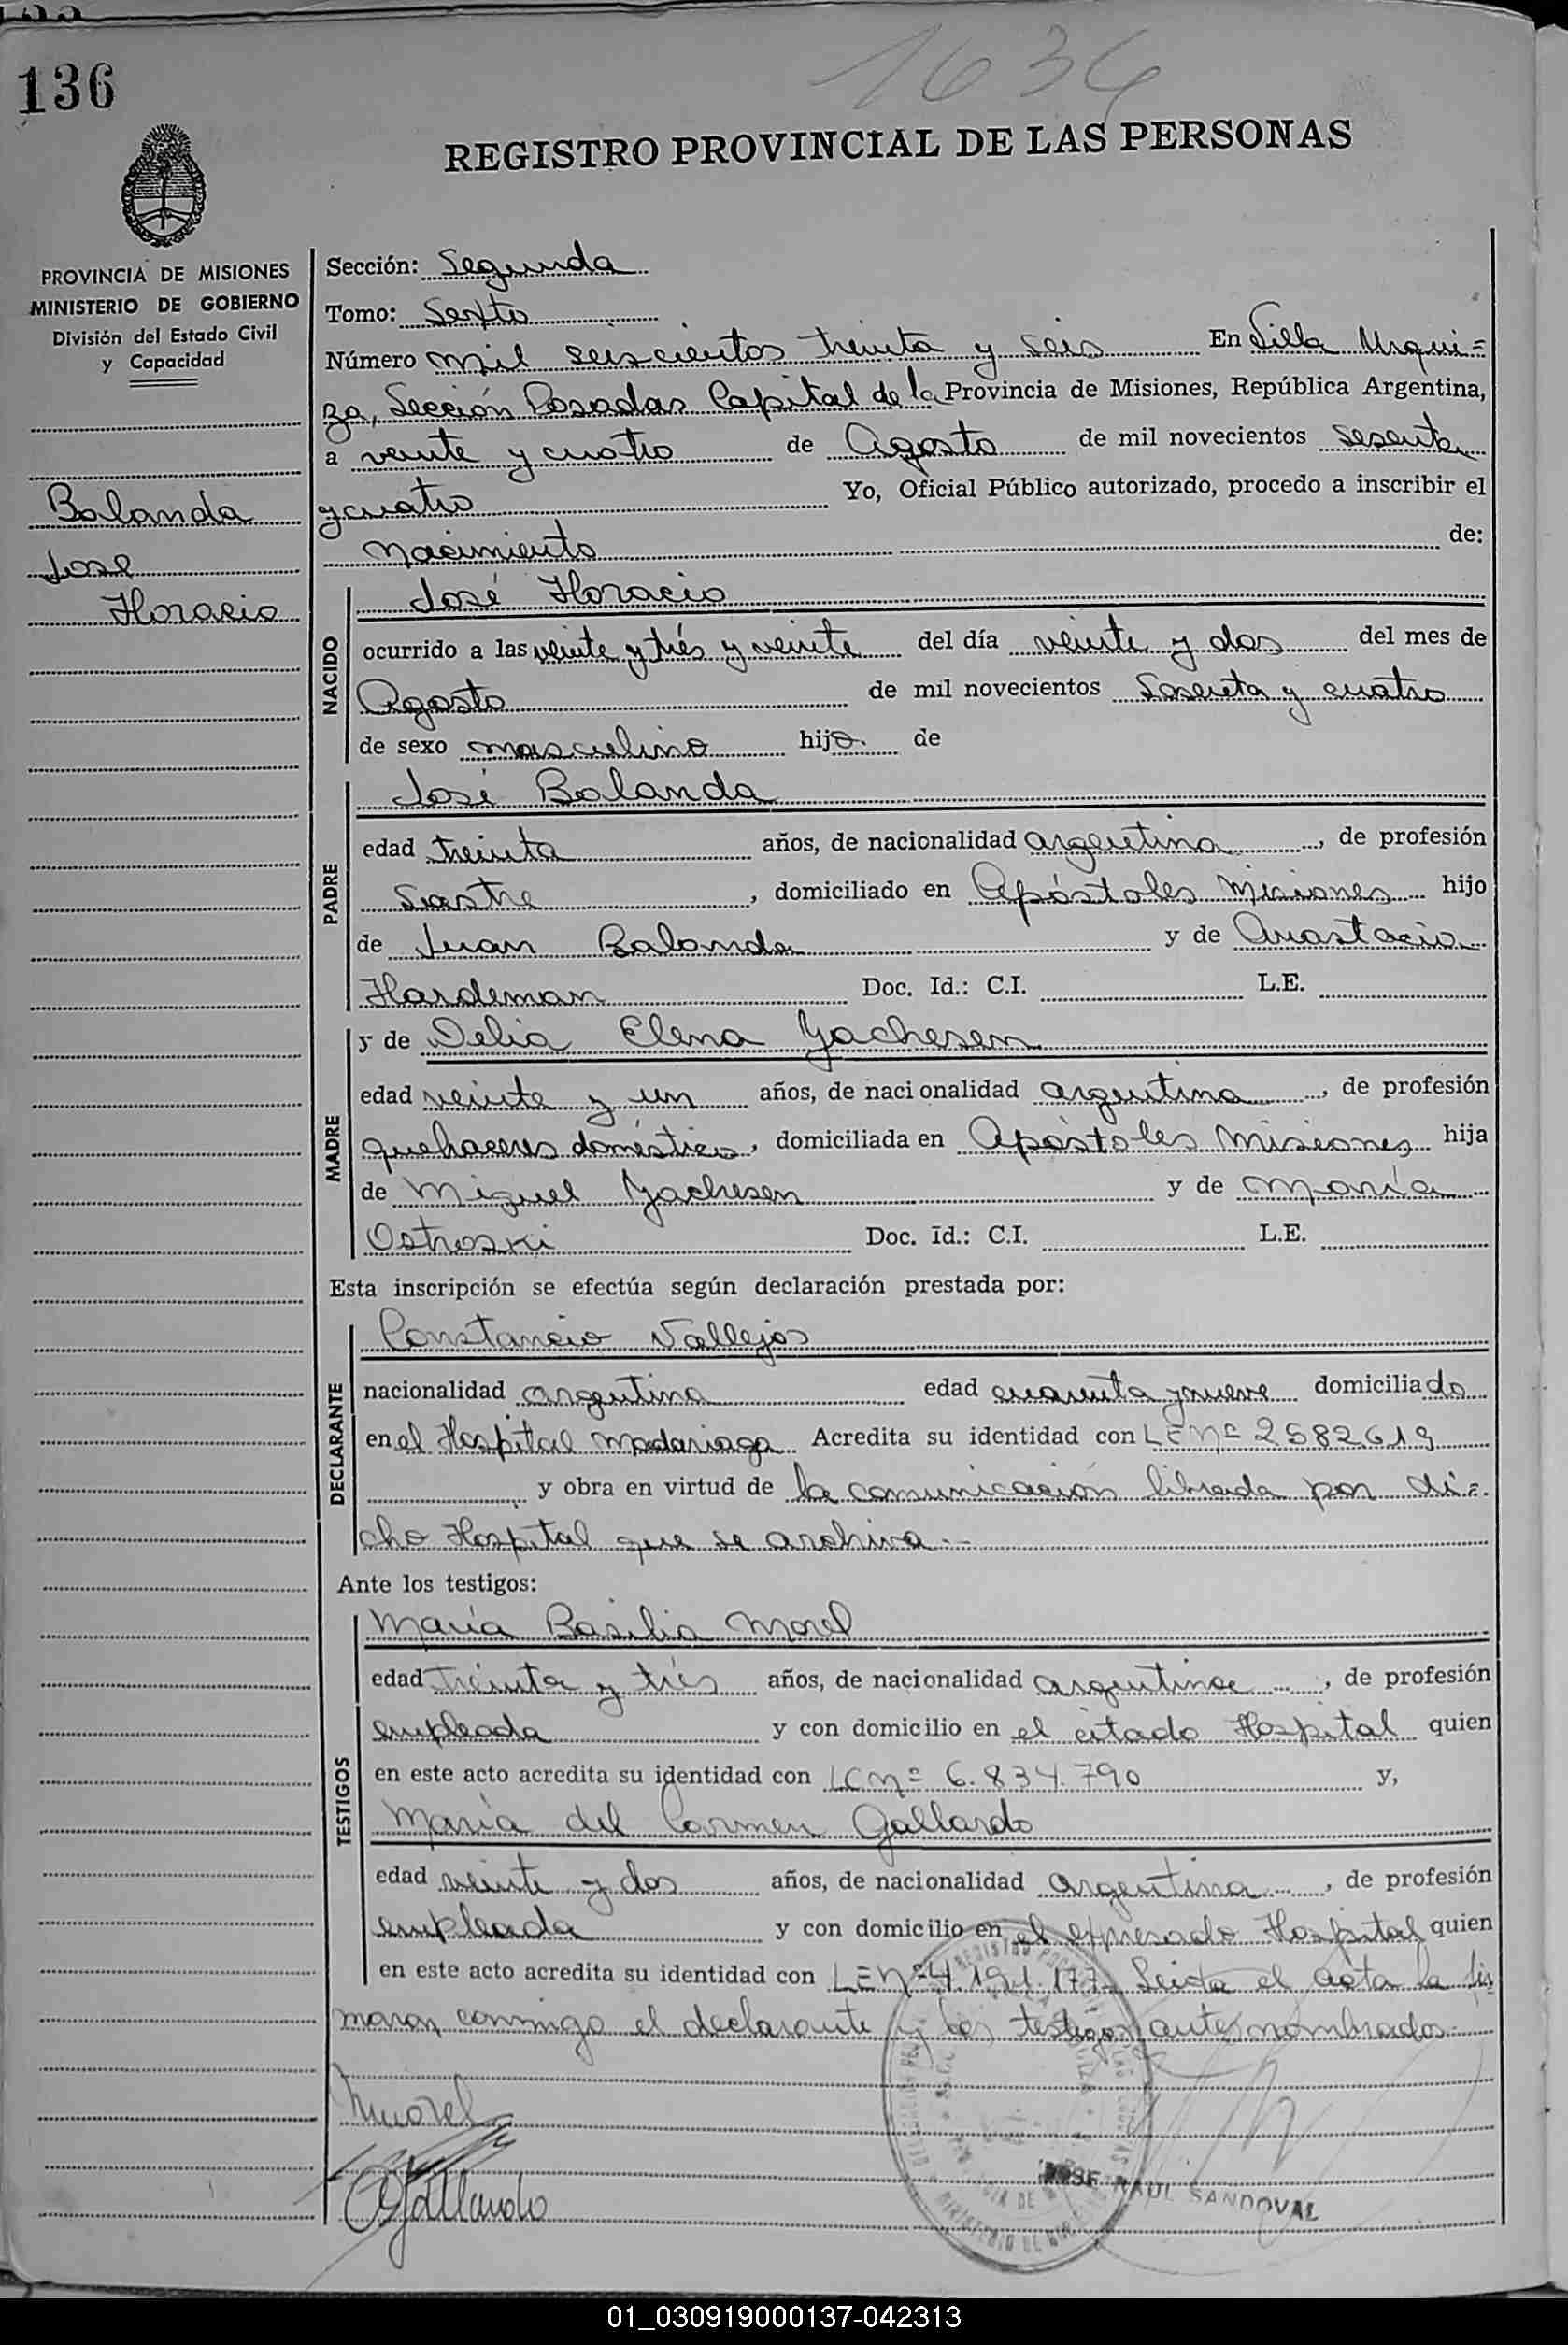 136
1636
REGISTRO PROVINCIAL DE LAS PERSONAS
PROVINCIA DE MISIONES
MINISTERIO DE GOBIERNO
División del Estado Civil
y Capacidad
Balanda
Jose
Horacio
Sección: Segunda
Tomo: Sexto
Número mil seiscientos treinta y seis En Villa Urqui=
za, Sección Posadas Capital de la Provincia de Misiones, República Argentina,
a veinte y cuatro de Agosto de mil novecientos sesenta
y cuatro Yo, Oficial Público autorizado, procedo a inscribir el
nacimiento de:
NACIDO
José Horacio
ocurrido a las veinte y trés y veinte del día veinte y dos del mes de
Agosto de mil novecientos Sesenta y cuatro
de sexo masculino hijo. de
PADRE
José Balanda
edad treinta años, de nacionalidad argentina, de profesión
Sastre, domiciliado en Apóstoles Misiones hijo
de Juan Balanda y de Anastacia
Hardeman Doc. Id.: C.I. L.E.
MADRE
y de Delia Elena Yachesen
edad veinte y un años, de nacionalidad argentina, de profesión
quehaceres domésticos, domiciliada en Apóstoles Misiones hija
de Miguel Yachesen y de María
Ostroski Doc. Id.: C.I. L.E.
Esta inscripción se efectúa según declaración prestada por:
DECLARANTE
Constancio Vallejos
nacionalidad argentina edad cuarenta y nueve domiciliado
en el Hospital Madariaga Acredita su identidad con LE Nº 2582619
y obra en virtud de la comunicación librada por di=
cho Hospital que se archiva.-
Ante los testigos:
TESTIGOS
María Basilia Morel
edad treinta y trés años, de nacionalidad argentina, de profesión
empleada y con domicilio en el citado Hospital quien
en este acto acredita su identidad con LC Nº 6.834.790 y,
María del Carmen Gallardo
edad veinte y dos años, de nacionalidad argentina, de profesión
empleada y con domicilio en el expresado Hospital quien
en este acto acredita su identidad con LE Nº 4.191.177- Leida el acta la fir
maron conmigo el declarante y los testigos antes nombrados.-
MMorel
Gallardo
JOSE RAUL SANDOVAL
01_030919000137-042313